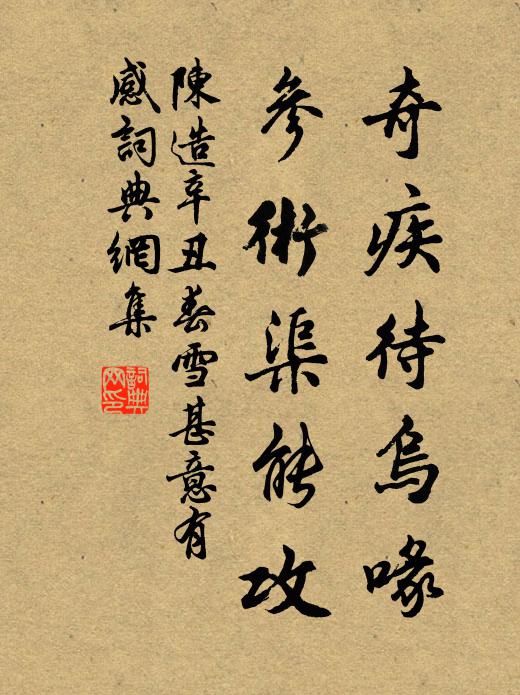 奇疾待烏喙
參術渠能攻
陳造辛丑春雪甚意有
感詞典網集
詞典
网印